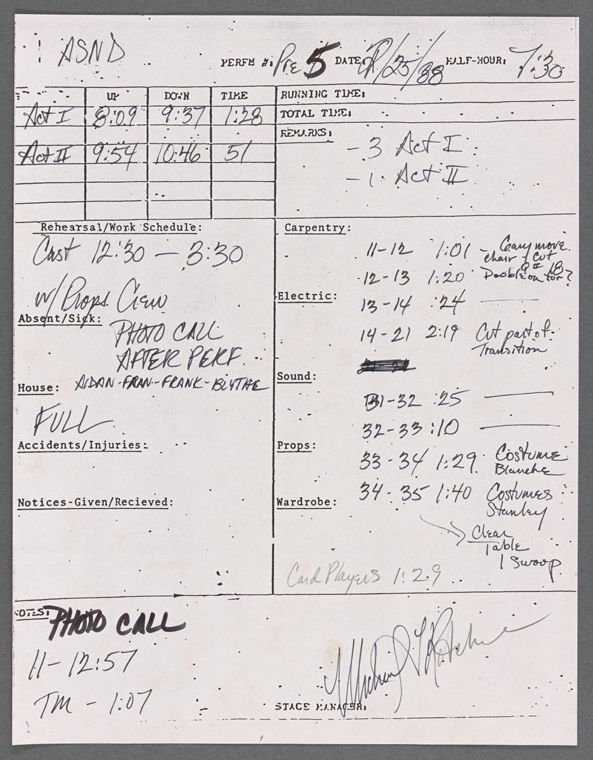 ASND
PERFM #: Pre 5 DATE: /25/88 HALF-HOUR: 7:30
UP DOWN TIME
Act I 8:09 9:37 1:28
Act II 9:54 10:46 51
RUNNING TIME:
TOTAL TIME:
REMARKS:
- 3 Act I
- 1 Act II
Rehearsal/Work Schedule:
Cast 12:30 — 3:30
w/Props Crew
Absent/Sick:
PHOTO CALL
AFTER PERF.
House: AIDAN-FRAN-FRANK-BLYTHE
FULL
Accidents/Injuries:
Notices-Given/Recieved:
Carpentry:
11-12 1:01 - Gary move
chair & cut
12-13 1:20 Double on for?
Electric:
13-14 :24 —
14-21 2:19 Cut part of
Transition
Sound:
31-32 :25 —
32-33 :10 —
Props:
33-34 1:29 Costume
Blanche
Wardrobe:
34-35 1:40 Costumes
Stanley
Clear
Table
1 Swoop
Card Players 1:29
NOTES:
PHOTO CALL
11- 12:57
TM - 1:07
STAGE MANAGER: